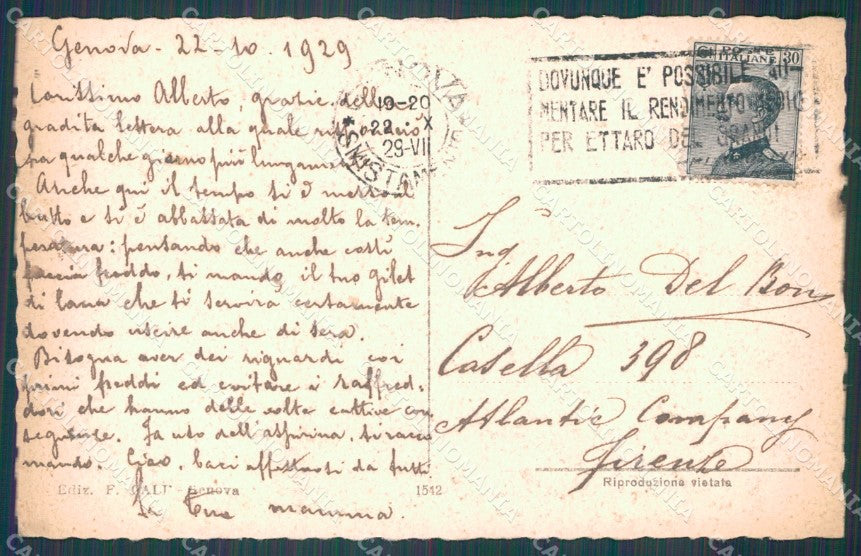 Genova - 22-10. 1929
Carissimo Alberto, grazie della
gradita lettera alla quale
qualche giorno più lungamente
Anche qui il tempo si è messo
brutto e si è abbassata di molto la tem-
peratura: pensando che anche costì
faccia freddo, ti mando il tuo gilet
di lana che ti servirà certamente
dovendo uscire anche di sera.
Bisogna aver dei riguardi coi
primi freddi ed evitare i raffred-
dori che hanno delle volte cattive con
seguenze. Fa uso dell'aspirina, ti racco
mando. Ciao, baci affettuosi da tutti
la tua mamma.
Ediz. F. CALI' - Genova
1542
GENOVA
19-20
22 X
29-VII
*SMISTAM
DOVUNQUE E' POSSIBILE AU-
MENTARE IL RENDIMENTO
PER ETTARO DEL GRANO
POSTE ITALIANE 30
Ing.
Alberto Del Bon
Casella 398
Atlantic Company
Firenze
Riproduzione vietata
CARTOLINOMANIA